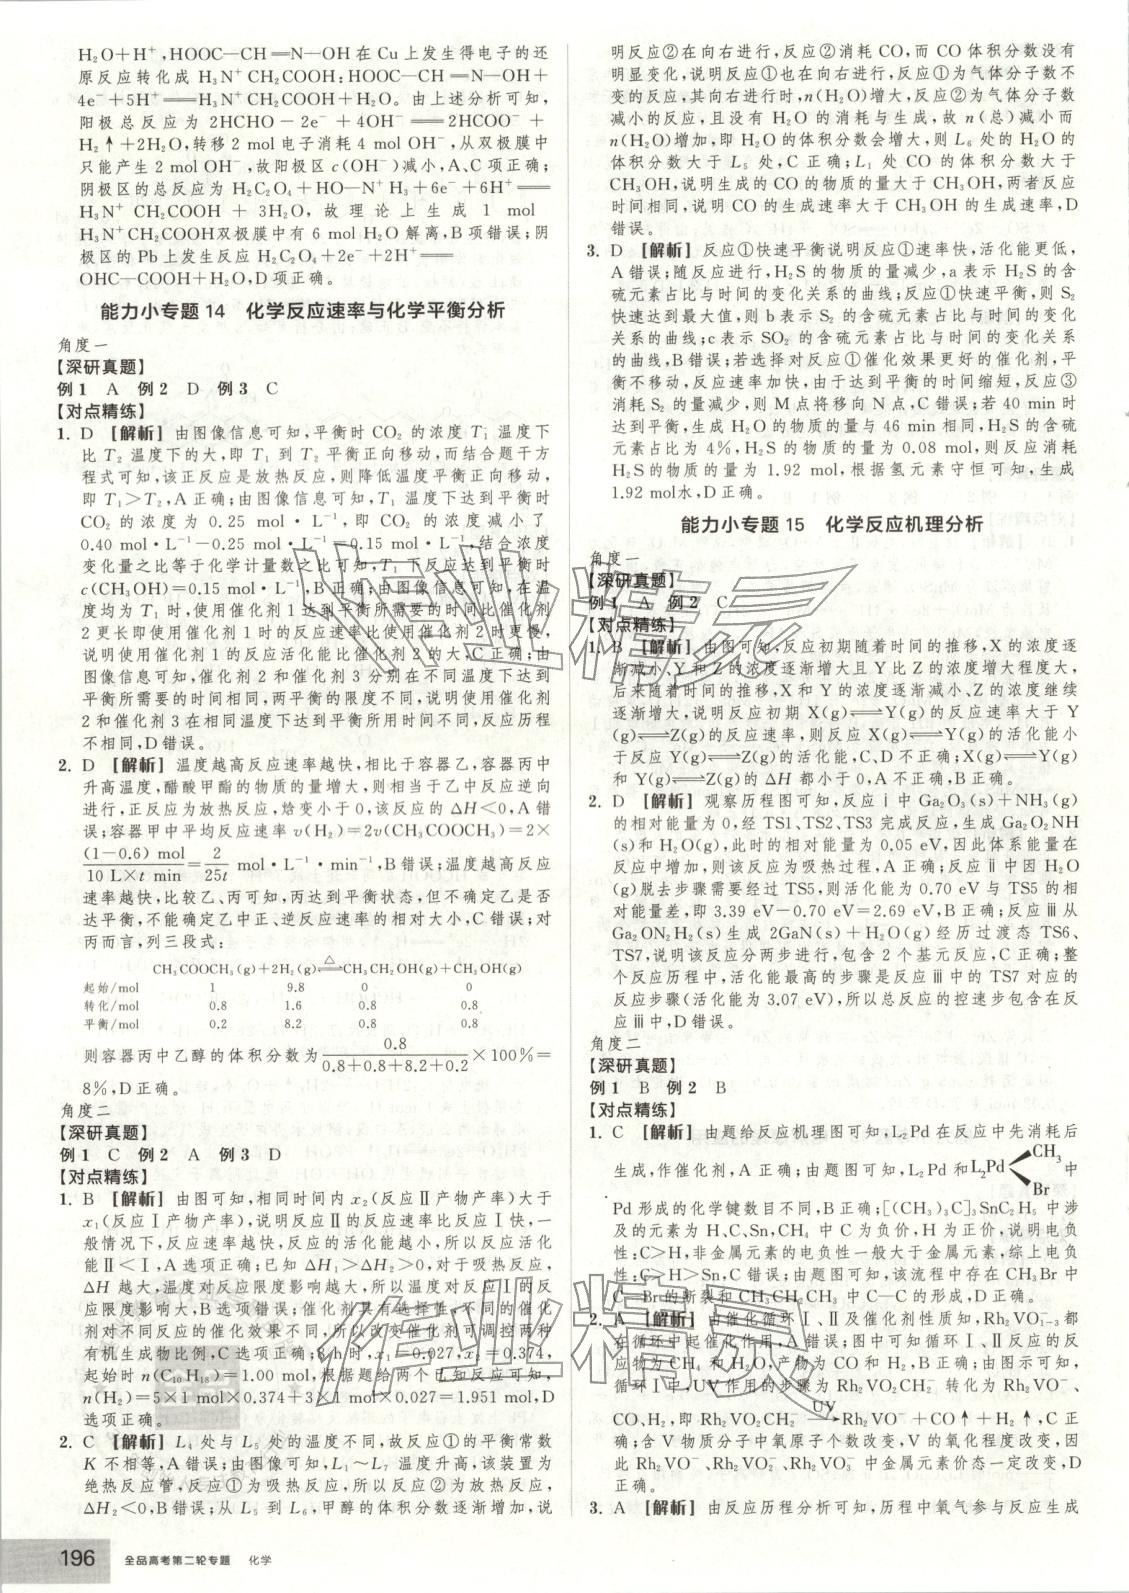 H₂O+H⁺,HOOC—CH═N—OH在Cu上发生得电子的还
原反应转化成H₃N⁺CH₂COOH:HOOC—CH═N—OH+
4e⁻+5H⁺═H₃N⁺CH₂COOH+H₂O。由上述分析可知,
阳极总反应为2HCHO-2e⁻+4OH⁻═2HCOO⁻+
H₂↑+2H₂O,转移2 mol电子消耗4 mol OH⁻,从双极膜中
只能产生2 mol OH⁻,故阳极区c(OH⁻)减小,A、C项正确;
阴极区的总反应为H₂C₂O₄+HO—N⁺H₃+6e⁻+6H⁺═
H₃N⁺CH₂COOH+3H₂O,故理论上生成1 mol
H₃N⁺CH₂COOH双极膜中有6 mol H₂O解离,B项错误;阴
极区的Pb上发生反应H₂C₂O₄+2e⁻+2H⁺═
OHC—COOH+H₂O,D项正确。
能力小专题14 化学反应速率与化学平衡分析
角度一
【深研真题】
例1 A 例2 D 例3 C
【对点精练】
1. D [解析] 由图像信息可知,平衡时CO₂的浓度T₁温度下
比T₂温度下的大,即T₁到T₂平衡正向移动,而结合题干方
程式可知,该正反应是放热反应,则降低温度平衡正向移动,
即T₁>T₂,A正确;由图像信息可知,T₁温度下达到平衡时
CO₂的浓度为0.25 mol·L⁻¹,即CO₂的浓度减小了
0.40 mol·L⁻¹-0.25 mol·L⁻¹=0.15 mol·L⁻¹,结合浓度
变化量之比等于化学计量数之比可知,T₁下反应达到平衡时
c(CH₃OH)=0.15 mol·L⁻¹,B正确;由图像信息可知,在温
度均为T₁时,使用催化剂1达到平衡所需要的时间比催化剂
2更长即使用催化剂1时的反应速率比使用催化剂2时更慢,
说明使用催化剂1的反应活化能比催化剂2的大,C正确;由
图像信息可知,催化剂2和催化剂3分别在不同温度下达到
平衡所需要的时间相同,两平衡的限度不同,说明使用催化剂
2和催化剂3在相同温度下达到平衡所用时间不同,反应历程
不相同,D错误。
2. D [解析] 温度越高反应速率越快,相比于容器乙,容器丙中
升高温度,醋酸甲酯的物质的量增大,则相当于乙中反应逆向
进行,正反应为放热反应,焓变小于0,该反应的ΔH<0,A错
误;容器甲中平均反应速率v(H₂)=2v(CH₃COOCH₃)=2×
(1-0.6) mol/10 L×t min=2/25t mol·L⁻¹·min⁻¹,B错误;温度越高反应
速率越快,比较乙、丙可知,丙达到平衡状态,但不确定乙是否
达平衡,不能确定乙中正、逆反应速率的相对大小,C错误;对
丙而言,列三段式:
CH₃COOCH₃(g)+2H₂(g)⇌△CH₃CH₂OH(g)+CH₃OH(g)
起始/mol 1 9.8 0 0
转化/mol 0.8 1.6 0.8 0.8
平衡/mol 0.2 8.2 0.8 0.8
则容器丙中乙醇的体积分数为0.8/0.8+0.8+8.2+0.2×100%=
8%,D正确。
角度二
【深研真题】
例1 C 例2 A 例3 D
【对点精练】
1. B [解析] 由图可知,相同时间内x₂(反应Ⅱ产物产率)大于
x₁(反应Ⅰ产物产率),说明反应Ⅱ的反应速率比反应Ⅰ快,一
般情况下,反应速率越快,反应的活化能越小,所以反应活化
能Ⅱ<Ⅰ,A选项正确;已知ΔH₁>ΔH₂>0,对于吸热反应,
ΔH越大,温度对反应限度影响越大,所以温度对反应Ⅰ的反
应限度影响大,B选项错误;催化剂具有选择性,不同的催化
剂对不同反应的催化效果不同,所以改变催化剂可调控两种
有机生成物比例,C选项正确;8 h时,x₁=0.027,x₂=0.374,
起始时n(C₁₀H₁₈)=1.00 mol,根据两个已知反应可知,
n(H₂)=5×1 mol×0.374+3×1 mol×0.027=1.951 mol,D
选项正确。
2. C [解析] L₄处与L₅处的温度不同,故反应①的平衡常数
K不相等,A错误;由图像可知,L₁~L₇温度升高,该装置为
绝热反应管,反应①为吸热反应,所以反应②为放热反应,
ΔH₂<0,B错误;从L₅到L₆,甲醇的体积分数逐渐增加,说
明反应②在向右进行,反应②消耗CO,而CO体积分数没有
明显变化,说明反应①也在向右进行,反应①为气体分子数不
变的反应,其向右进行时,n(H₂O)增大,反应②为气体分子数
减小的反应,且没有H₂O的消耗与生成,故n(总)减小而
n(H₂O)增加,即H₂O的体积分数会增大,则L₆处的H₂O的
体积分数大于L₅处,C正确;L₁处CO的体积分数大于
CH₃OH,说明生成的CO的物质的量大于CH₃OH,两者反应
时间相同,说明CO的生成速率大于CH₃OH的生成速率,D
错误。
3. D [解析] 反应①快速平衡说明反应①速率快,活化能更低,
A错误;随反应进行,H₂S的物质的量减少,a表示H₂S的含
硫元素占比与时间的变化关系的曲线;反应快速平衡,则S₂
快速达到最大值,则b表示S₂的含硫元素占比与时间的变化
关系的曲线;c表示SO₂的含硫元素占比与时间的变化关系
的曲线,B错误;若选择对反应①催化效果更好的催化剂,平
衡不移动,反应速率加快,由于达到平衡的时间缩短,反应③
消耗S₂的量减少,则M点将移向N点,C错误;若40 min时
达到平衡,生成H₂O的物质的量与46 min相同,H₂S的含硫
元素占比为4%,H₂S的物质的量为0.08 mol,则反应消耗
H₂S的物质的量为1.92 mol,根据氢元素守恒可知,生成
1.92 mol水,D正确。
能力小专题15 化学反应机理分析
角度一
【深研真题】
例1 A 例2 C
【对点精练】
1. B [解析] 由图可知,反应初期随着时间的推移,X的浓度逐
渐减小、Y和Z的浓度逐渐增大且Y比Z的浓度增大程度大,
后来随着时间的推移,X和Y的浓度逐渐减小、Z的浓度继续
逐渐增大,说明反应初期X(g)⇌Y(g)的反应速率大于Y
(g)⇌Z(g)的反应速率,则反应X(g)⇌Y(g)的活化能小
于反应Y(g)⇌Z(g)的活化能,C、D不正确;X(g)⇌Y(g)
和Y(g)⇌Z(g)的ΔH都小于0,A不正确,B正确。
2. D [解析] 观察历程图可知,反应ⅰ中Ga₂O₃(s)+NH₃(g)
的相对能量为0,经TS1、TS2、TS3完成反应,生成Ga₂O₂NH
(s)和H₂O(g),此时的相对能量为0.05 eV,因此体系能量在
反应中增加,则该反应为吸热过程,A正确;反应ⅱ中因H₂O
(g)脱去步骤需要经过TS5,则活化能为0.70 eV与TS5的相
对能量差,即3.39 eV-0.70 eV=2.69 eV,B正确;反应ⅲ从
Ga₂ON₂H₂(s)生成2GaN(s)+H₂O(g)经历过渡态TS6、
TS7,说明该反应分两步进行,包含2个基元反应,C正确;整
个反应历程中,活化能最高的步骤是反应ⅲ中的TS7对应的
反应步骤(活化能为3.07 eV),所以总反应的控速步包含在反
应ⅲ中,D错误。
角度二
【深研真题】
例1 B 例2 B
【对点精练】
1. C [解析] 由题给反应机理图可知,L₂Pd在反应中先消耗后
生成,作催化剂,A正确;由题图可知,L₂Pd和L₂Pd CH₃ Br 中
Pd形成的化学键数目不同,B正确;[(CH₃)₃C]₃SnC₂H₅中涉
及的元素为H、C、Sn,CH₄中C为负价,H为正价,说明电负
性:C>H,非金属元素的电负性一般大于金属元素,综上电负
性:C>H>Sn,C错误;由题图可知,该流程中存在CH₃Br中
C—Br的断裂和CH₃CH₂CH₃中C—C的形成,D正确。
2. A [解析] 由催化循环Ⅰ、Ⅱ及催化剂性质知,Rh₂VO⁻₁₋₃都
在循环中起催化作用,A错误;图中可知循环Ⅰ、Ⅱ反应的反
应物为CH₄和H₂O,产物为CO和H₂,B正确;由图示可知,
循环Ⅰ中,UV作用的步骤为Rh₂VO₂CH₂⁻转化为Rh₂VO⁻、
CO、H₂,即Rh₂VO₂CH₂⁻ UV→ Rh₂VO⁻+CO↑+H₂↑,C正
确;含V物质分子中氧原子个数改变,V的氧化程度改变,因
此Rh₂VO⁻、Rh₂VO₂⁻、Rh₂VO₃⁻中金属元素价态一定改变,D
正确。
3. A [解析] 由反应历程分析可知,历程中氧气参与反应生成
196 全品高考第二轮专题 化学
作业精灵
作业精灵